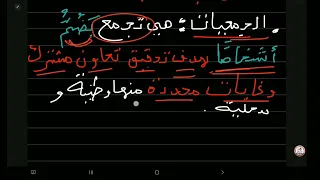 . الجمعيات : هي تجمع يضم
أشخاصا بهدف تحقيق تعاون مشترك
وغايات محددة منها وطنية و
محلية .